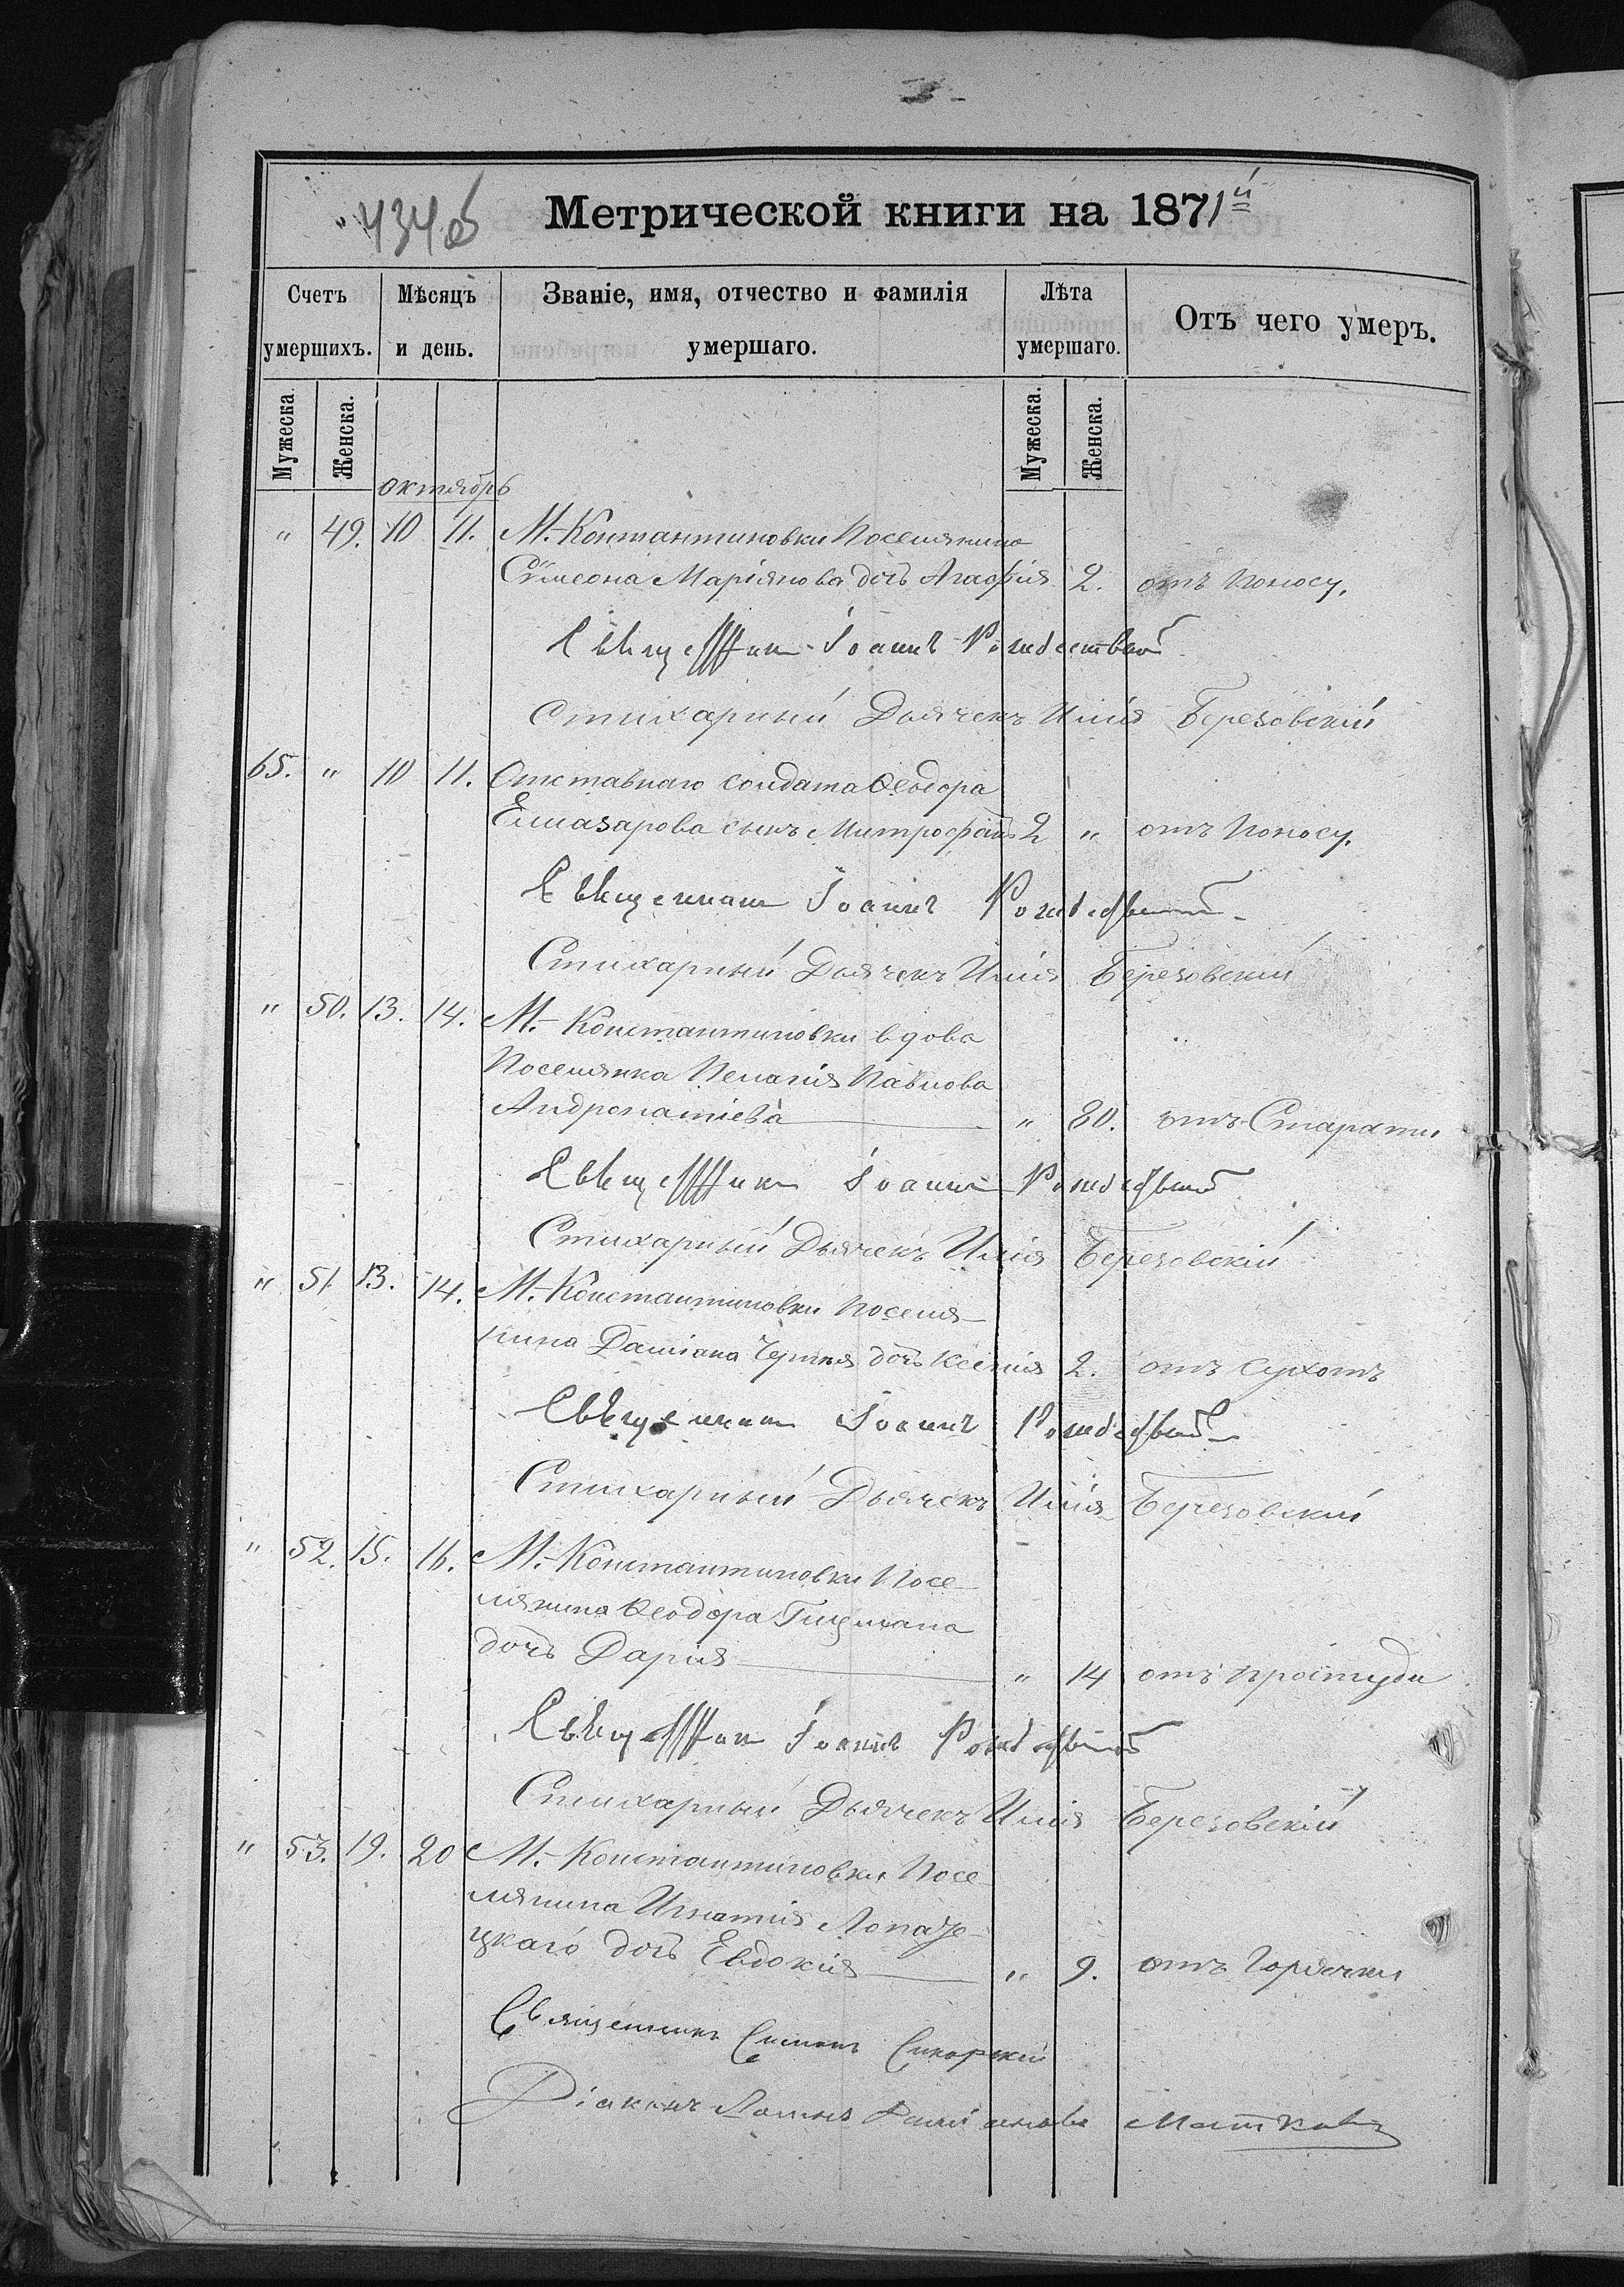 434об
Метрической книги на 1871й
Счетъ умершихъ.
Мѣсяцъ и день.
Званіе, имя, отчество и фамилія умершаго.
Лѣта умершаго.
Отъ чего умеръ.
Мужеска. Женска. Мужеска. Женска.
октябрь
" 49. 10 11. М.-Константиновки Поселянина
Сүмеона Маріянова дочь Агафія 2. отъ поносу.
Священникъ Іоаннъ Рождественскій
Стихарный Дьячекъ Илія Березовскій
65. " 10 11. Отставнаго солдата Ѳеодора
Елиазарова сынъ Митрофанъ 2 " отъ поносу.
Священникъ Іоаннъ Рождественскій
Стихарный Дьячекъ Илія Березовскій
" 50. 13. 14. М.-Константиновки вдова
Поселянка Пелагія Павлова
" 80. отъ Старости
Священникъ Іоаннъ Рождественскій
Стихарный Дьячекъ Илія Березовскій
" 51 13. 14. М.-Константиновки поселя-
нина Даміана дочь Ксенія 2. отъ сухотъ
Священникъ Іоаннъ Рождественскій
Стихарный Дьячекъ Илія Березовскій
" 52. 15. 16. М.-Константиновки Посе-
лянина Ѳеодора Гицмана
дочь Дарія " 14 отъ простуди
Священникъ Іоаннъ Рождественскій
Стихарный Дьячекъ Илія Березовскій
" 53. 19. 20 М.-Константиновки Посе
лянина Игнатія
цкаго дочь Евдокія " 9. отъ Горячки
Священникъ Симонъ Сикорскій
Діаконъ